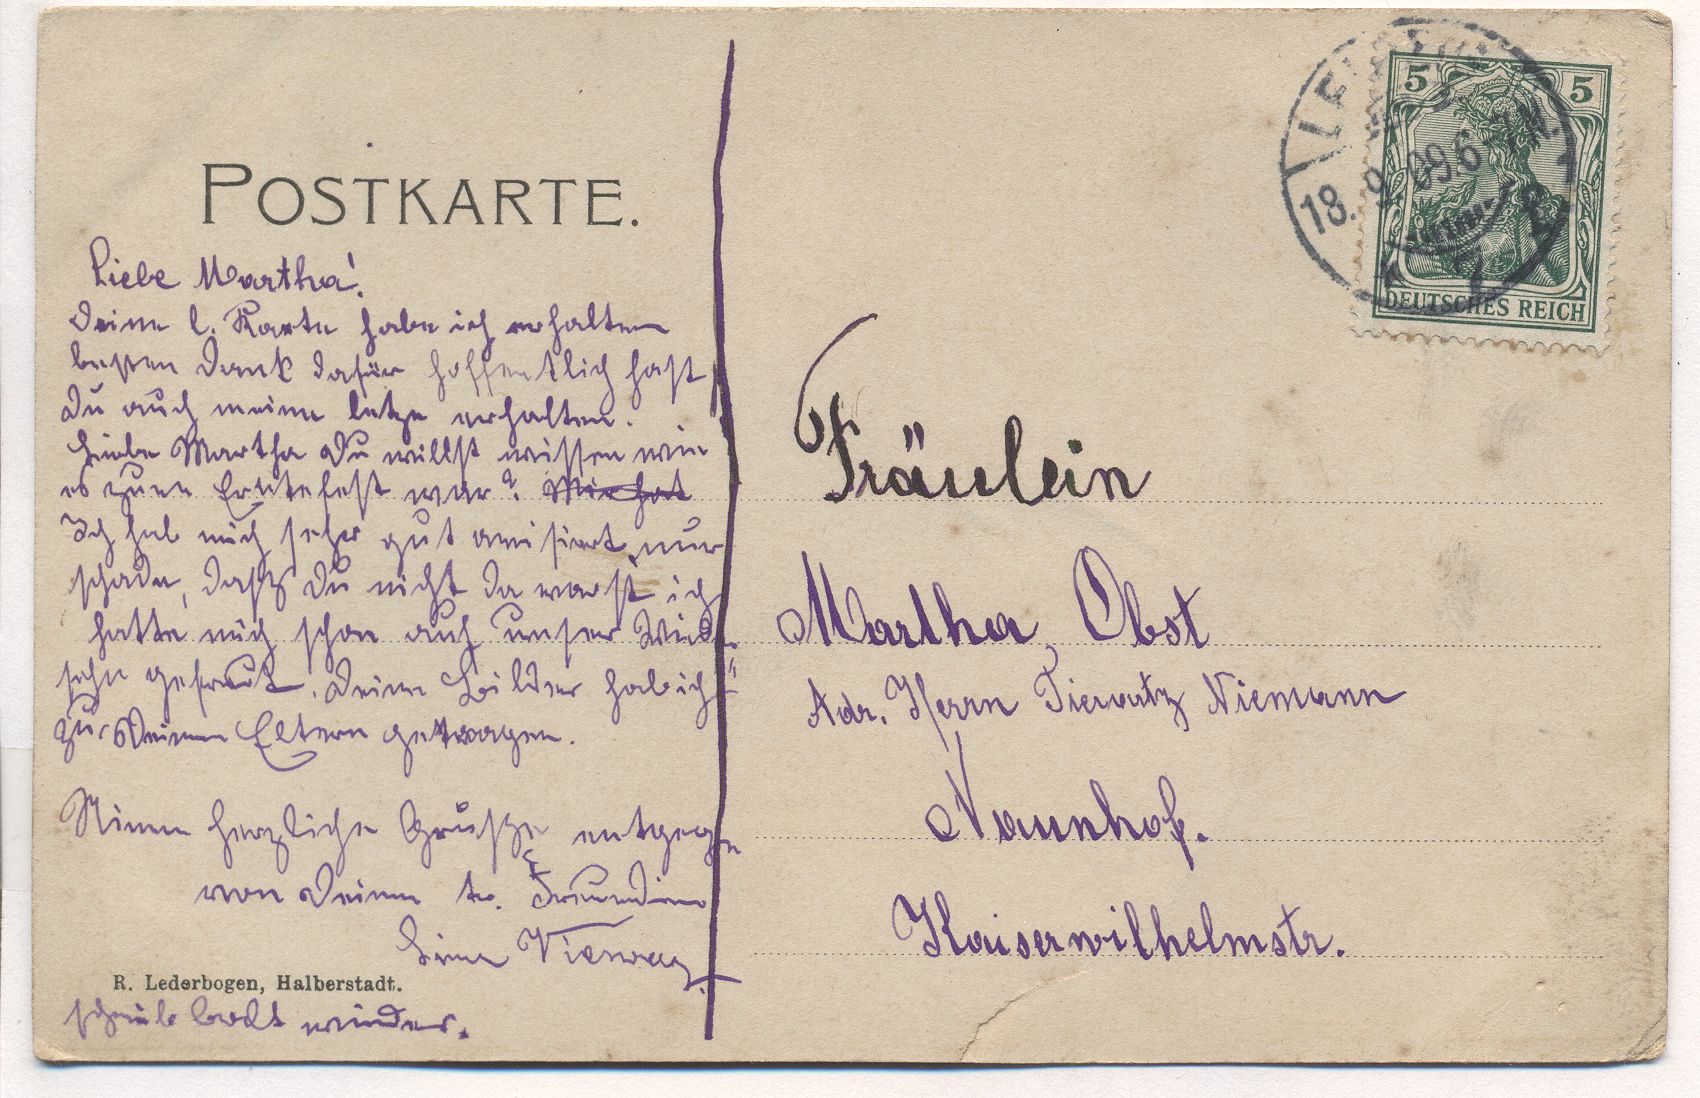 POSTKARTE.
Liebe Martha!
Deine l. Karte habe ich erhalten
besten Dank dafür hoffentlich hast
Du auch meine letze erhalten.
Liebe Martha Du willst wissen wie
es zum Erntefest war? Mir hat
Ich hab mich sehr gut amisiert, nur
schade, dasz Du nicht da warst ich
hatte mich schon auf unser Wied.
sehn gefreut. Deine Bilder hab ich
zu Deinen Eltern getragen.
Nimm herzliche Grüsze entgegen
von Deiner tr. Freundin
Lina Vieweg.
R. Lederbogen, Halberstadt.
schreib bald wieder.
5 5
DEUTSCHES REICH
18. 9. 09. 6-7 N.
Fräulein
Martha Obst
Adr. Herrn Niemann
Naunhof.
Kaiserwilhelmstr.